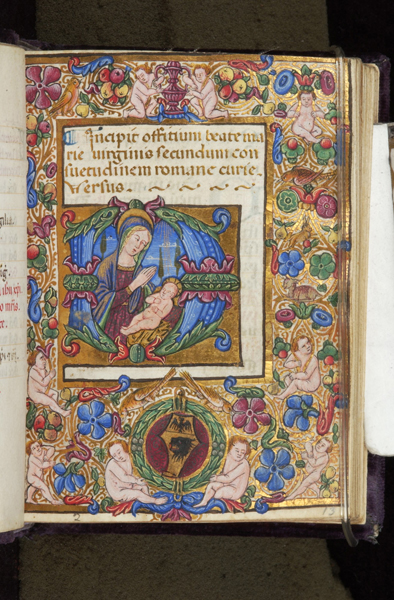 Incipit offitium beate ma
rie virginis secundum con
suetudinem romane curie.
Versus.